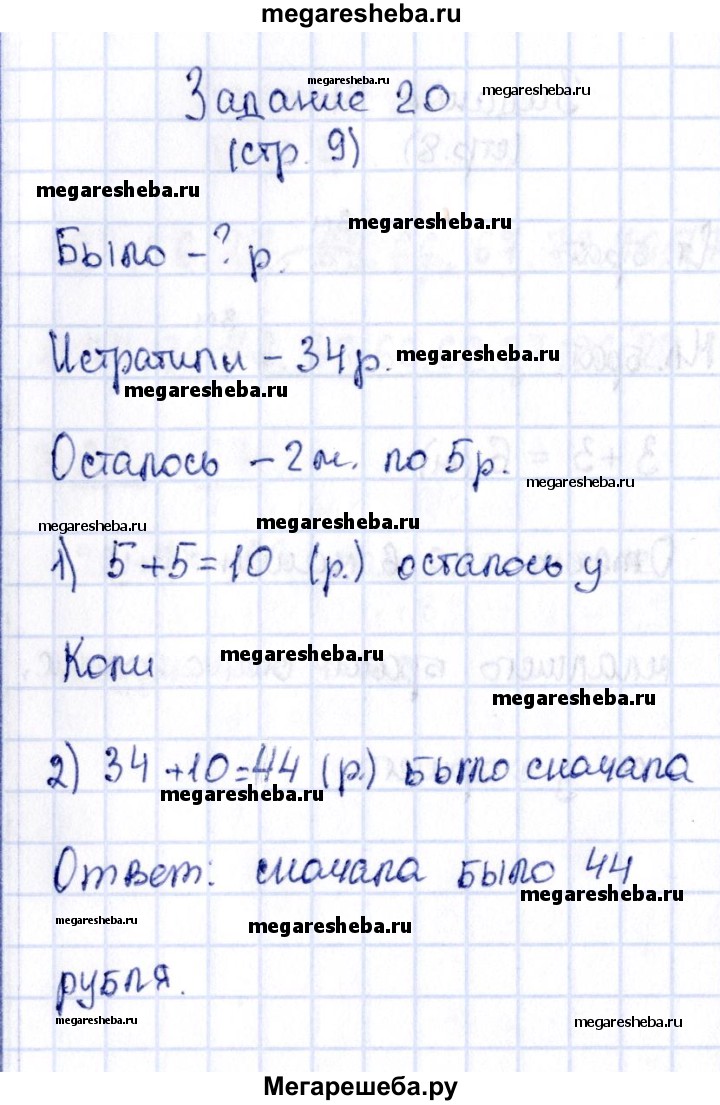 megaresheba.ru
Задание 20
megaresheba.ru
megaresheba.ru
(стр. 9)
megaresheba.ru
megaresheba.ru
Было - ? р.
Истратили - 34 р.
megaresheba.ru
megaresheba.ru
Осталось - 2 м. по 5 р.
megaresheba.ru
megaresheba.ru
megaresheba.ru
1) 5+5=10 (р.) осталось у
Коли
megaresheba.ru
megaresheba.ru
2) 34+10=44 (р.) было сначала
megaresheba.ru
Ответ: сначала было 44
megaresheba.ru
megaresheba.ru
megaresheba.ru
рубля.
megaresheba.ru
megaresheba.ru
Мегарешеба.ру